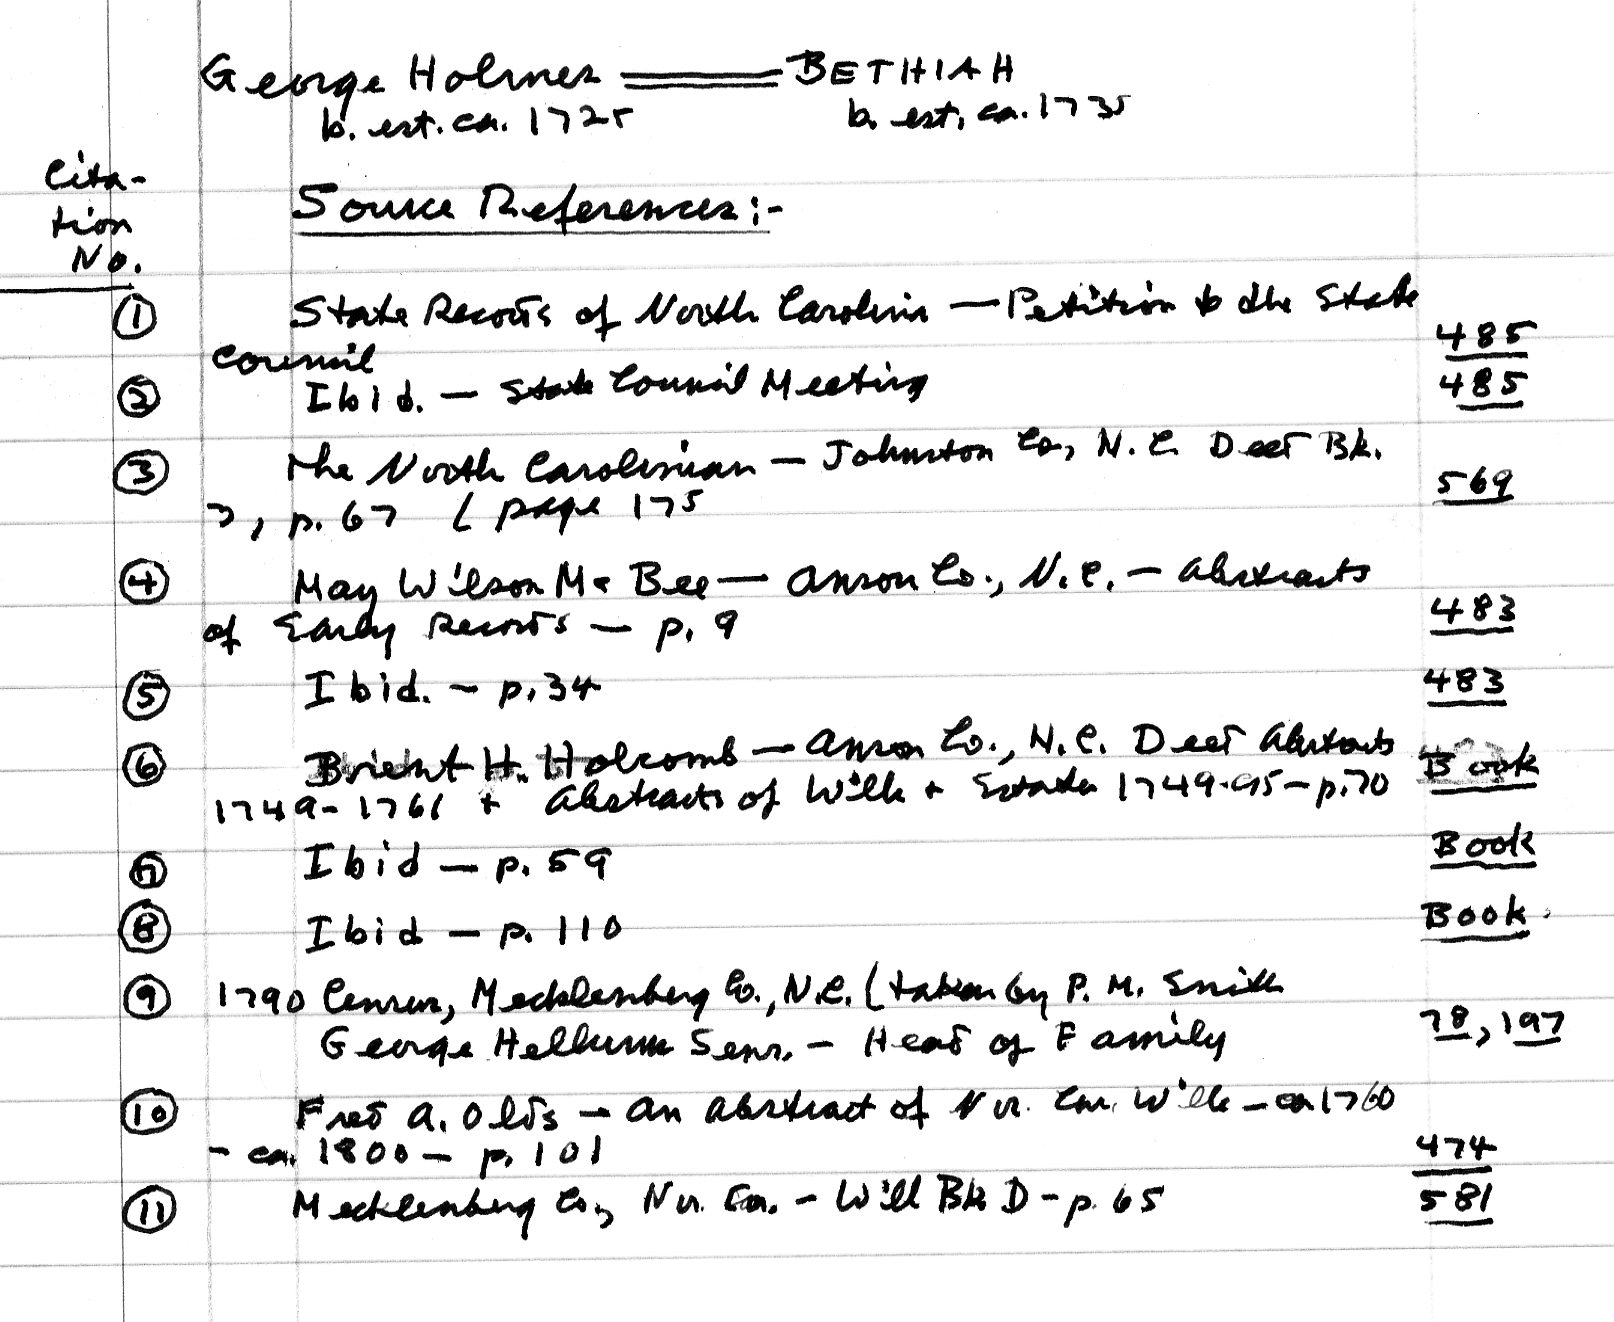 George Holmes BETHIAH
b. est. ca. 1725 b. est. ca. 1735
Cita-
tion
No.
Source References:-
1 State Records of North Carolina — Petition to the State
Council 485
2 Ibid. — State Council Meeting 485
3 The North Carolinian — Johnston Co, N.C. Deed Bk.
, p. 67 ( page 175 569
4 May Wilson McBee — Anson Co., N.C. — Abstracts
of Early Records — p. 9 483
5 Ibid. — p. 34 483
6 Brient H. Holcomb — Anson Co., N.C. Deed Abstracts
1749-1761 + Abstracts of Wills + Estates 1749-95 — p. 70 Book
7 Ibid — p. 59 Book
8 Ibid — p. 110 Book
9 1790 Census, Mecklenberg Co., N.C. (taken by P. M. Smith
George Senr. — Head of Family 78, 197
10 Fred A. Olds — An Abstract of No. Car. Wills — ca 1760
- ca. 1800 — p. 101 474
11 Mecklenberg Co., No. Ca. — Will Bk D - p. 65 581